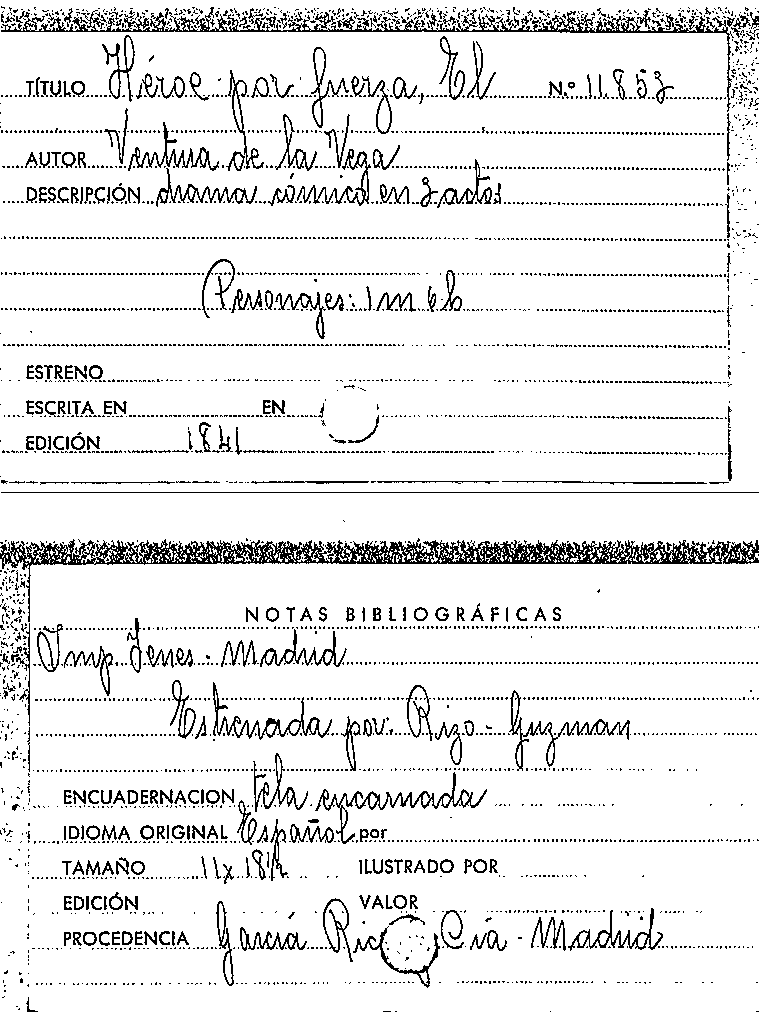 TÍTULO Héroe por fuerza, El N.º 11.853
AUTOR Ventura de la Vega
DESCRIPCIÓN drama cómico en 3 actos
Personajes: 1 m 6 h
ESTRENO
ESCRITA EN EN
EDICIÓN 1841
NOTAS BIBLIOGRÁFICAS
Imp. Yenes - Madrid
Estrenada por: Rizo - Guzman
ENCUADERNACION tela encarnada
IDIOMA ORIGINAL Español por
TAMAÑO 11 x 18 1/2 ILUSTRADO POR
EDICIÓN VALOR
PROCEDENCIA García Rico Cía - Madrid